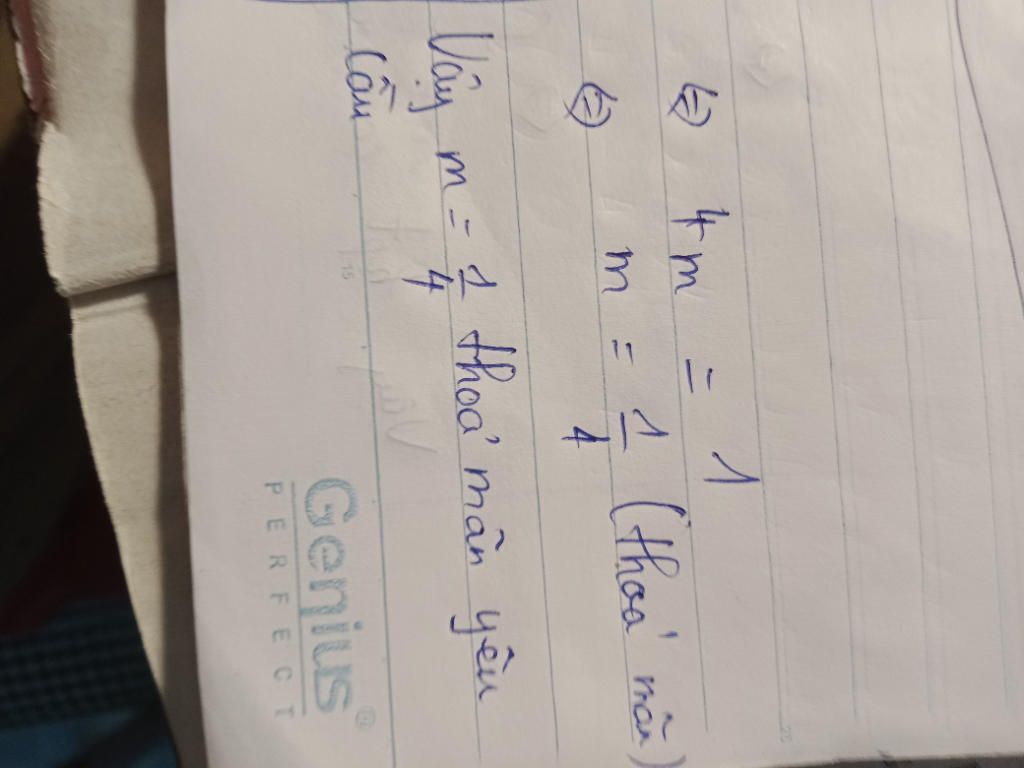 ⇔ 4m = 1
⇔ m = 1/4 (thoả mãn)
Vậy m = 1/4 thoả mãn yêu
cầu
Genius®
PERFECT